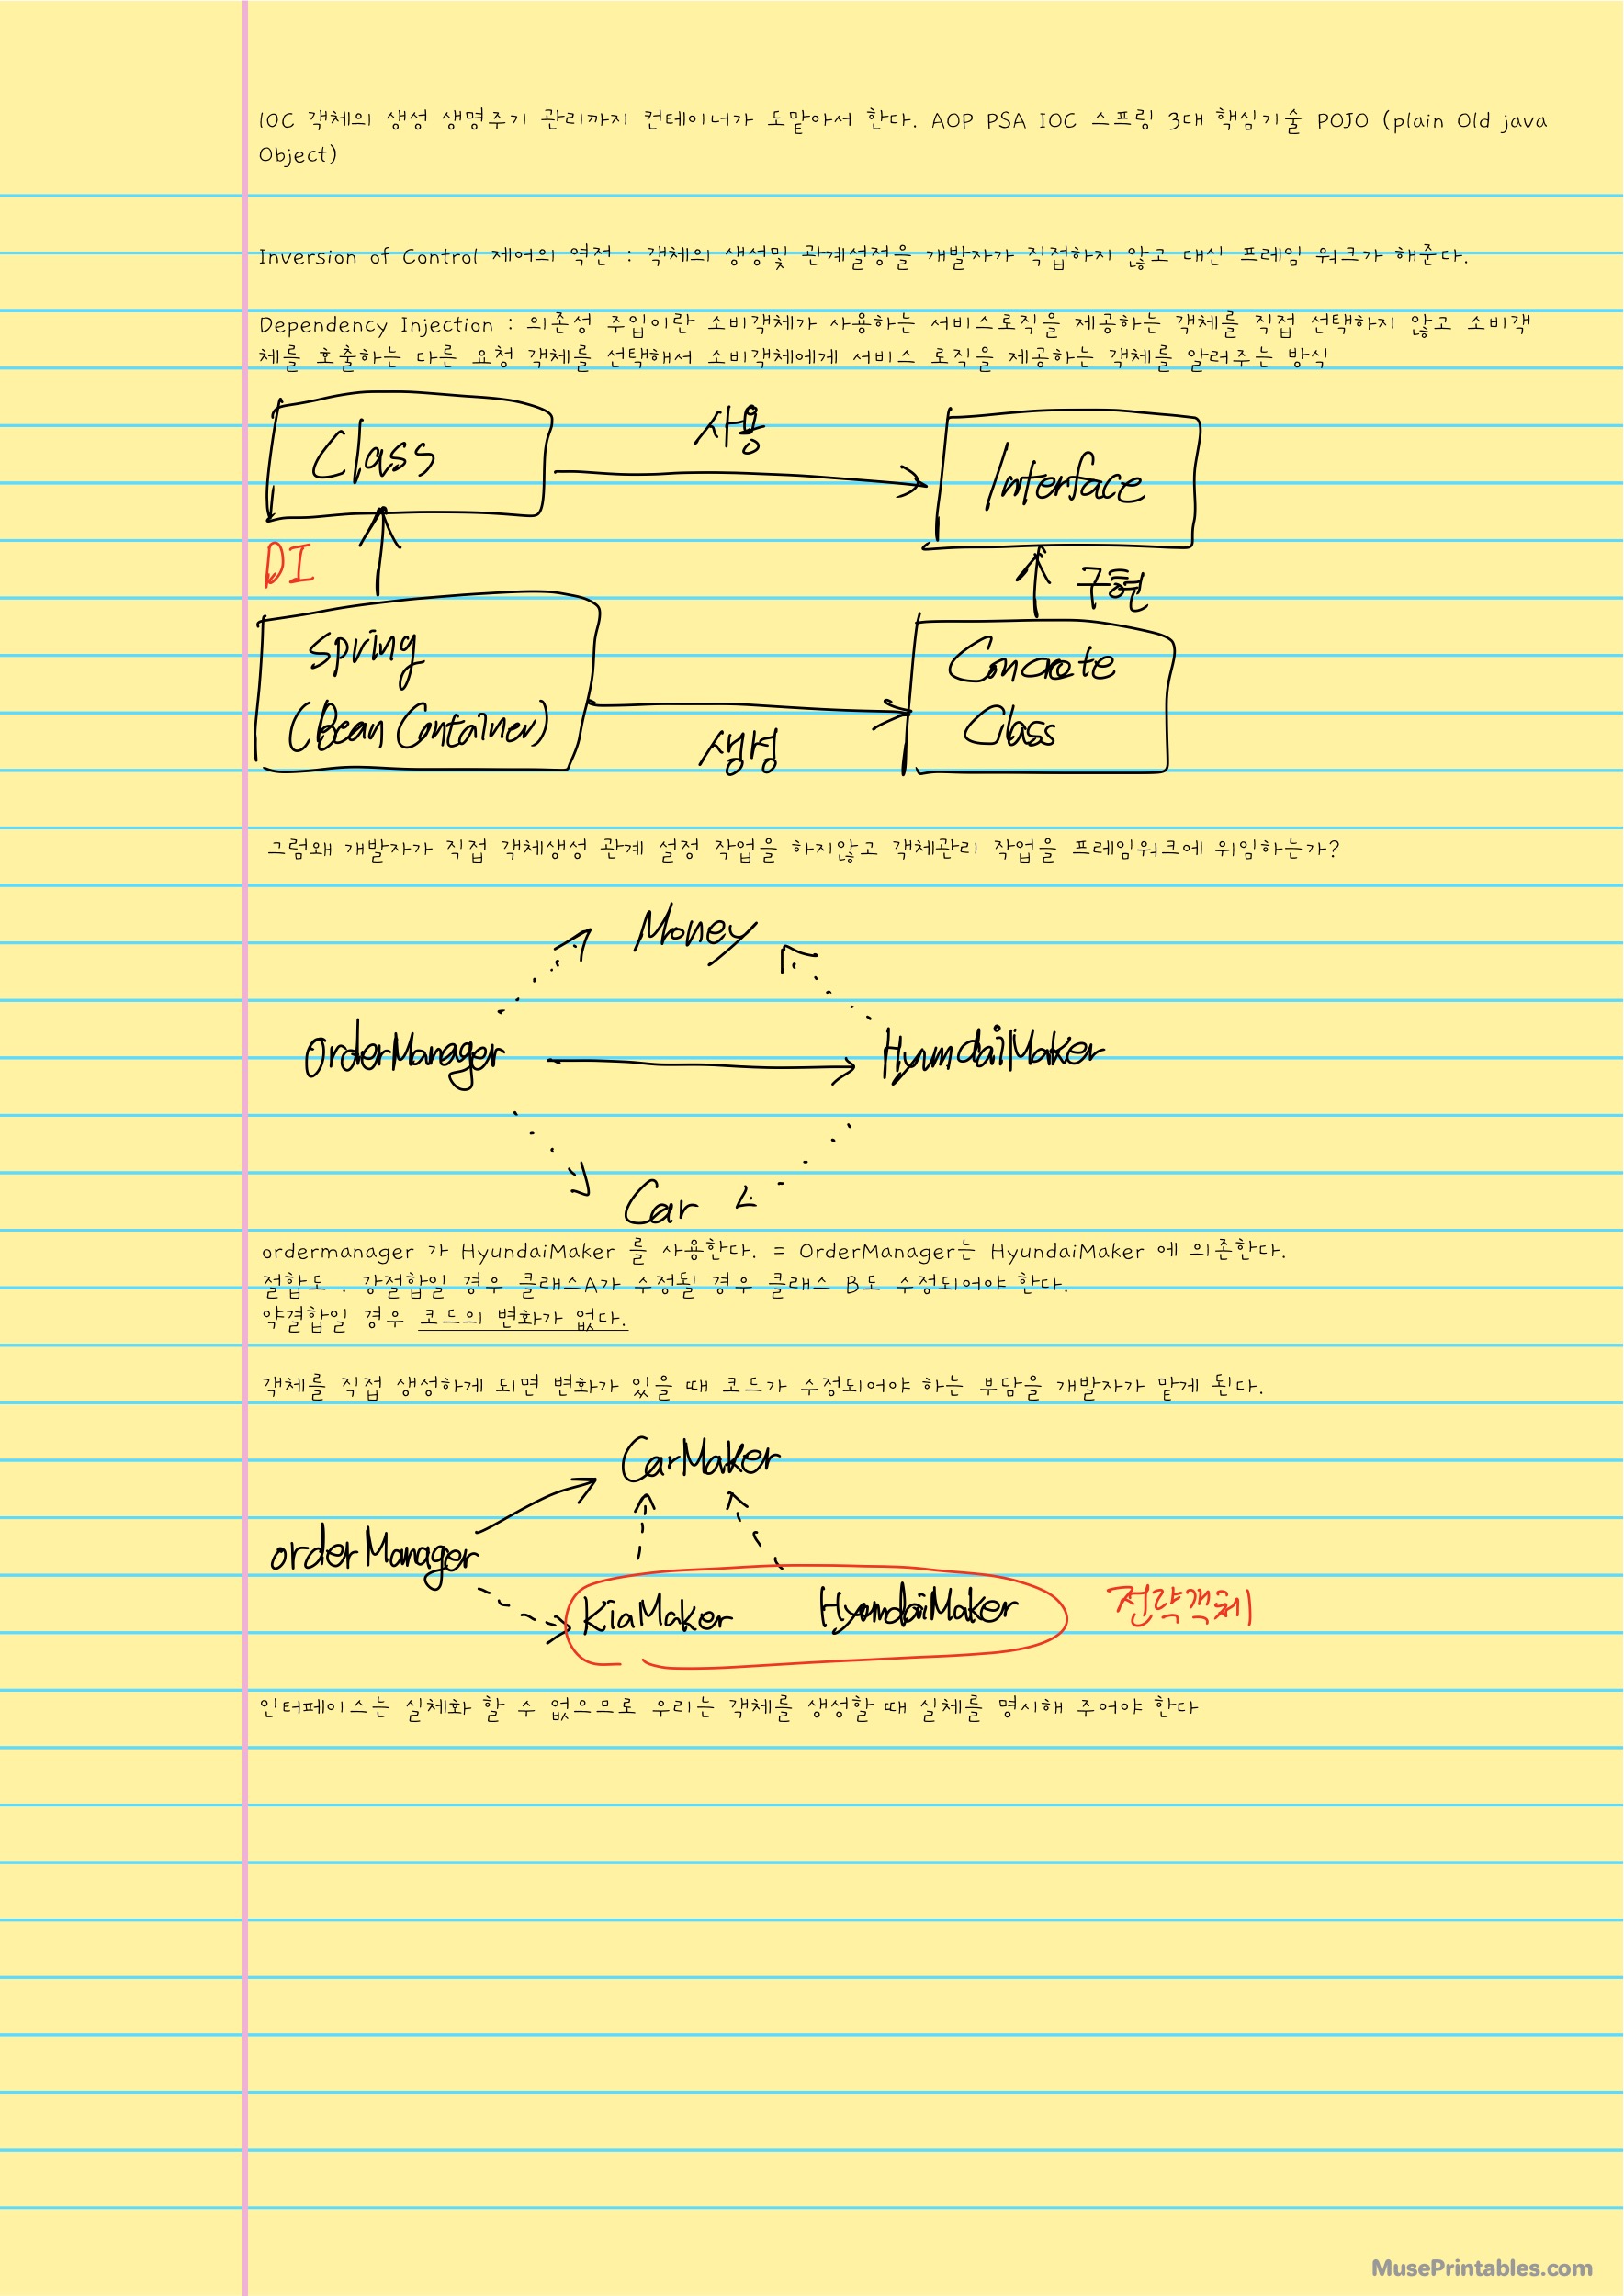 IOC 객체의 생성 생명주기 관리까지 컨테이너가 도맡아서 한다. AOP PSA IOC 스프링 3대 핵심기술 POJO (plain Old java
Object)
Inversion of Control 제어의 역전 : 객체의 생성및 관계설정을 개발자가 직접하지 않고 대신 프레임 워크가 해준다.
Dependency Injection : 의존성 주입이란 소비객체가 사용하는 서비스로직을 제공하는 객체를 직접 선택하지 않고 소비객
체를 호출하는 다른 요청 객체를 선택해서 소비객체에게 서비스 로직을 제공하는 객체를 알려주는 방식
Class
사용
Interface
DI
구현
Spring
(Bean Container)
생성
Concrete
Class
그럼왜 개발자가 직접 객체생성 관계 설정 작업을 하지않고 객체관리 작업을 프레임워크에 위임하는가?
Money
OrderManager
HyundaiMaker
Car
ordermanager 가 HyundaiMaker 를 사용한다. = OrderManager는 HyundaiMaker 에 의존한다.
결합도 . 강결합일 경우 클래스A가 수정될 경우 클래스 B도 수정되어야 한다.
약결합일 경우 코드의 변화가 없다.
객체를 직접 생성하게 되면 변화가 있을 때 코드가 수정되어야 하는 부담을 개발자가 맡게 된다.
CarMaker
orderManager
KiaMaker
HyundaiMaker
전략객체
인터페이스는 실체화 할 수 없으므로 우리는 객체를 생성할 때 실체를 명시해 주어야 한다
MusePrintables.com